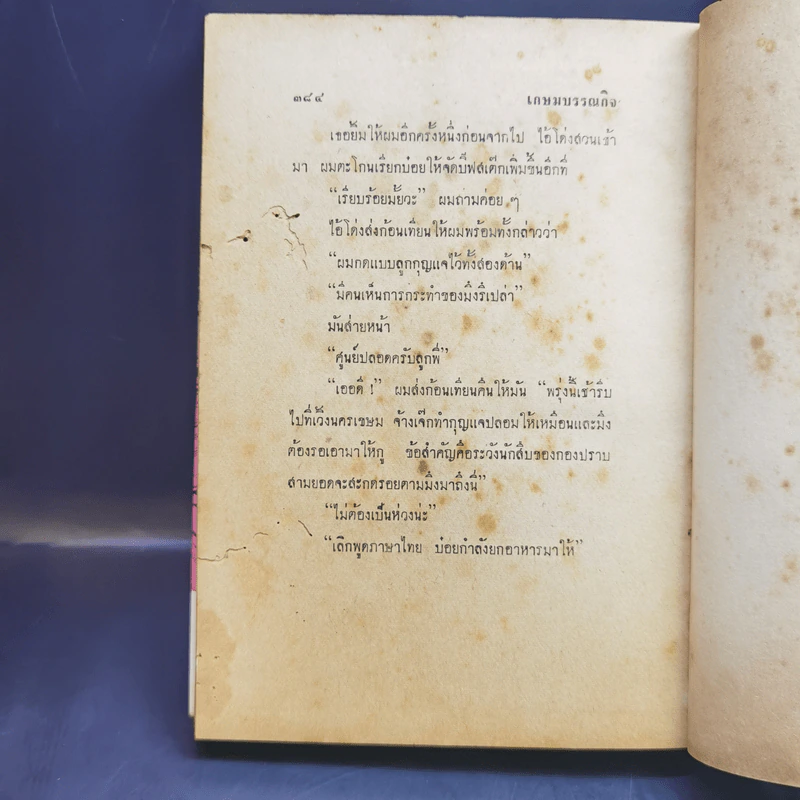 ๓๘๔ เกษมบรรณกิจ
เขายิ้มให้ผมอีกครั้งหนึ่งก่อนจากไป ไอ้โด่งสวนเข้า
มา ผมตะโกนเรียกบ๋อยให้จัดบีฟสเต๊กเพิ่มขึ้นอีกที่
“เรียบร้อยมั้ยวะ” ผมถามค่อย ๆ
ไอ้โด่งส่งก้อนเทียนให้ผมพร้อมทั้งกล่าวว่า
“ผมกดแบบลูกกุญแจไว้ทั้งสองด้าน”
“มีคนเห็นการกระทำของมึงรึเปล่า”
มันส่ายหน้า
“ศูนย์ปลอดครับลูกพี่”
“เออดี !” ผมส่งก้อนเทียนคืนให้มัน “พรุ่งนี้เช้ารีบ
ไปที่เวิ้งนครเขษม จ้างเจ๊กทำกุญแจปลอมให้เหมือนและมึง
ต้องรอเอามาให้กู ข้อสำคัญคือระวังนักสืบของกองปราบ
สามยอดจะสะกดรอยตามมึงมาถึงนี่”
“ไม่ต้องเป็นห่วงน่ะ”
“เลิกพูดภาษาไทย บ๋อยกำลังยกอาหารมาให้”